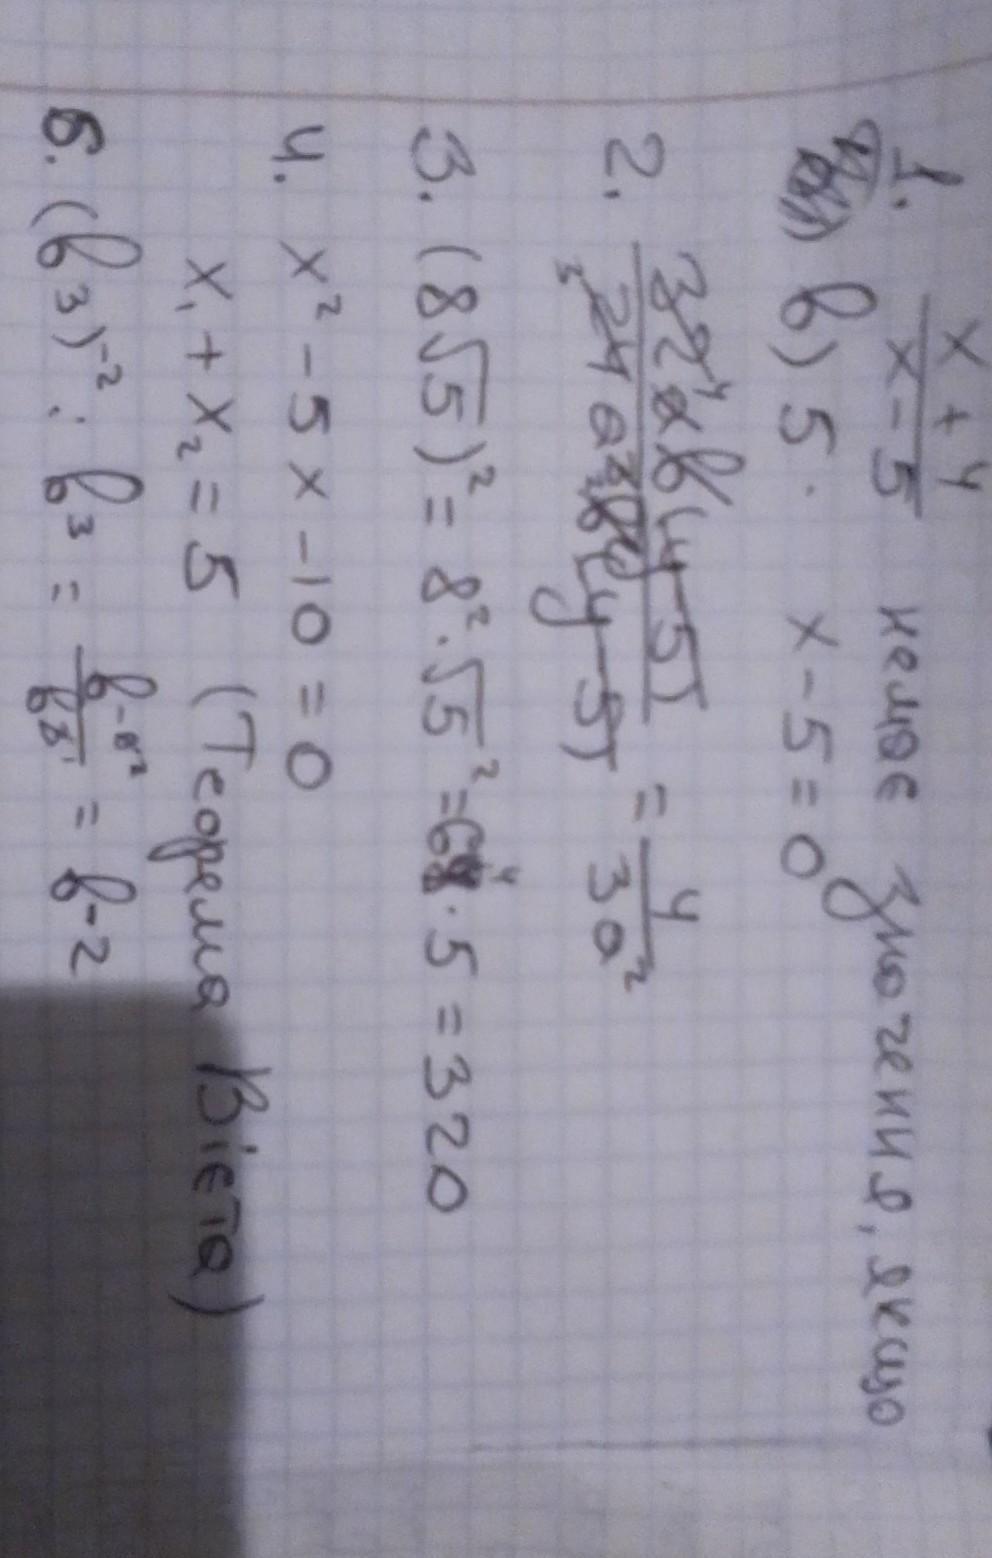 1. x + 4 / x - 5 немає значення, якщо
в) 5. x - 5 = 0
2. 32⁴ab(y-5) / ₃24a³b(y-5) = 4 / 3a²
3. (8√5)² = 8² · √5² = 64 · 5 = 320
4. x² - 5x - 10 = 0
x₁ + x₂ = 5 (Теорема Вієта)
5. (b3)⁻² : b3 = = b-2